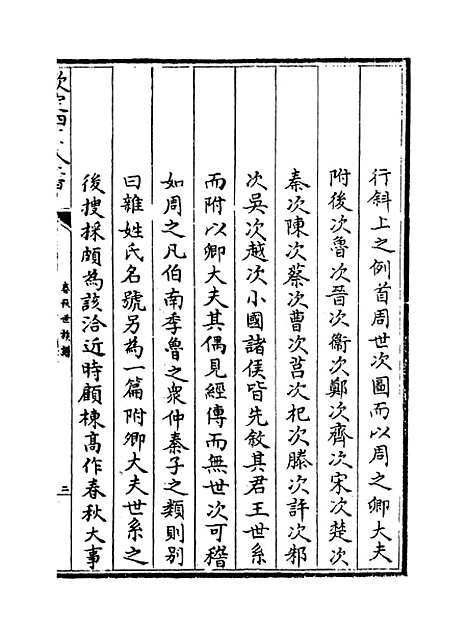 行斜上之例首周世次圖而以周之卿大夫
附後次魯次晉次衛次鄭次齊次宋次楚次
秦次陳次蔡次曹次莒次杞次滕次許次邾
次吳次越次小國諸侯皆先敘其君王世系
而附以卿大夫其偶見經傳而無世次可稽
如周之凡伯南季魯之衆仲秦子之類則別
曰雜姓氏名號另為一篇附卿大夫世系之
後搜採頗為該洽近時顧棟高作春秋大事
春秋世族譜
三